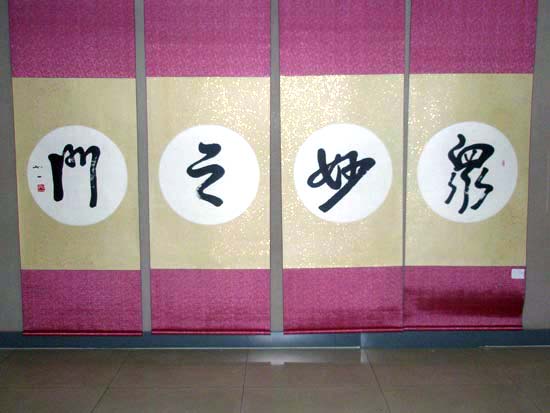 眾妙之門